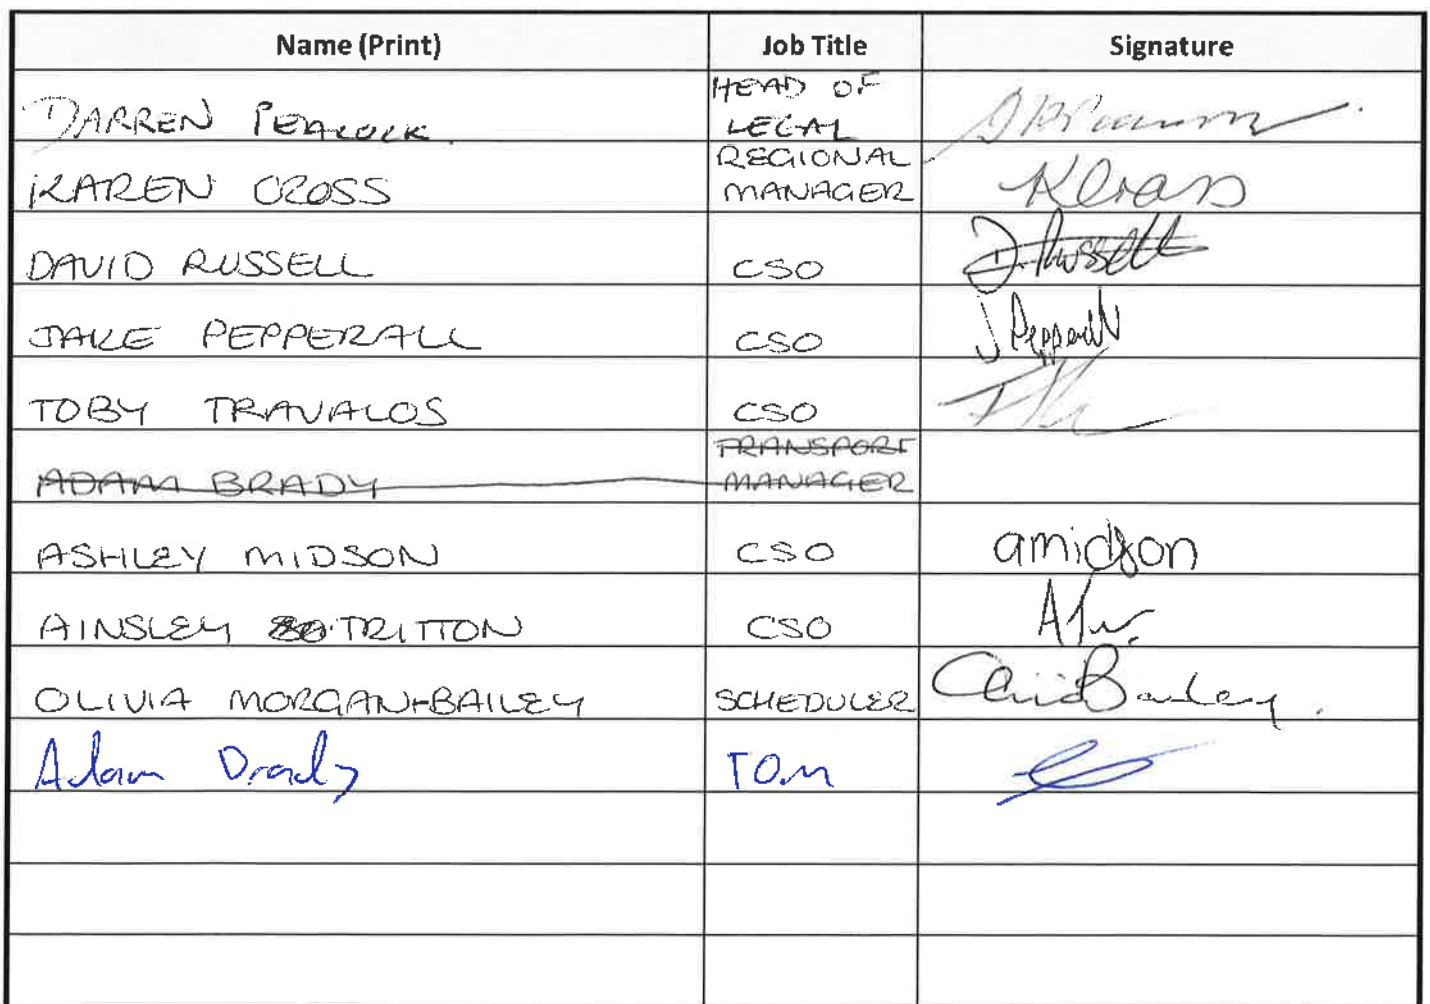 Name (Print) Job Title Signature
DARREN PEACOCK. HEAD OF LEGAL
KAREN CROSS REGIONAL MANAGER KCross
DAVID RUSSELL CSO D. Russell
JAKE PEPPERALL CSO J Pepperall
TOBY TRAVALOS CSO
ADAM BRADY TRANSPORT MANAGER
ASHLEY MIDSON CSO amidson
AINSLEY TRITTON CSO
OLIVIA MORGAN-BAILEY SCHEDULER Bailey.
Adam Brady TOM